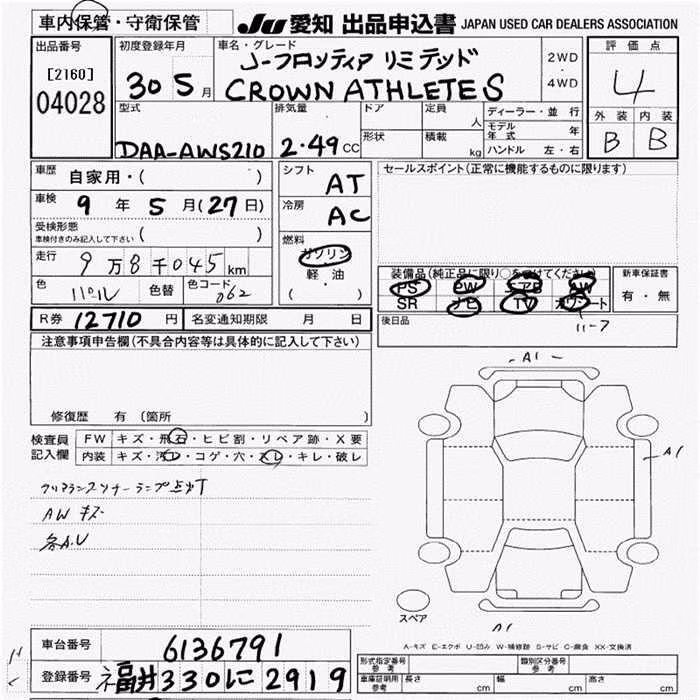 車内保管・守衛保管
JU 愛知 出品申込書 JAPAN USED CAR DEALERS ASSOCIATION
出品番号
[2160]
04028
初度登録年月
30 5月
車名・グレード
J-フロンティア リミテッド
CROWN ATHLETE S
2WD
・
4WD
評価点
4
外装 内装
B B
型式
DAA-AWS210
排気量
2.49 CC
ドア
定員
人
形状
積載
kg
ディーラー・並行
モデル年式 年
ハンドル 左・右
車歴
自家用・( )
車検 9年 5月(27日)
受検形態
車検付きのみ記入して下さい ( )
走行
9万8千045km
色
パール
色替
色コード
062
シフト
AT
冷房
AC
燃料
ガソリン
軽・油
( ・ )
セールスポイント(正常に機能するものに限ります)
装備品(純正品に限り○をつけてください)
PS PW エアB AW
SR ナビ TV カワシート
ハーフ
新車保証書
有・無
後日品
R券 12710円
名変通知期限 月 日
注意事項申告欄(不具合内容等は具体的に記入して下さい)
修復歴 有(箇所 )
検査員記入欄
FW キズ・飛石・ヒビ割・リペア跡・X要
内装 キズ・汚レ・コゲ・穴・スレ・キレ・破レ
クリアランスソナーランプ点灯
AW キズ
各A.U
A1
A1
A1
スペア
A-キズ E-エクボ U-凹み W-補修跡 S-サビ C-腐食 XX-交換済
車台番号 6136791
登録番号 福井330に2919
形式指定番号 参考
類別区分番号 参考
車庫証明用 参考 長さ cm 幅 cm 高さ cm